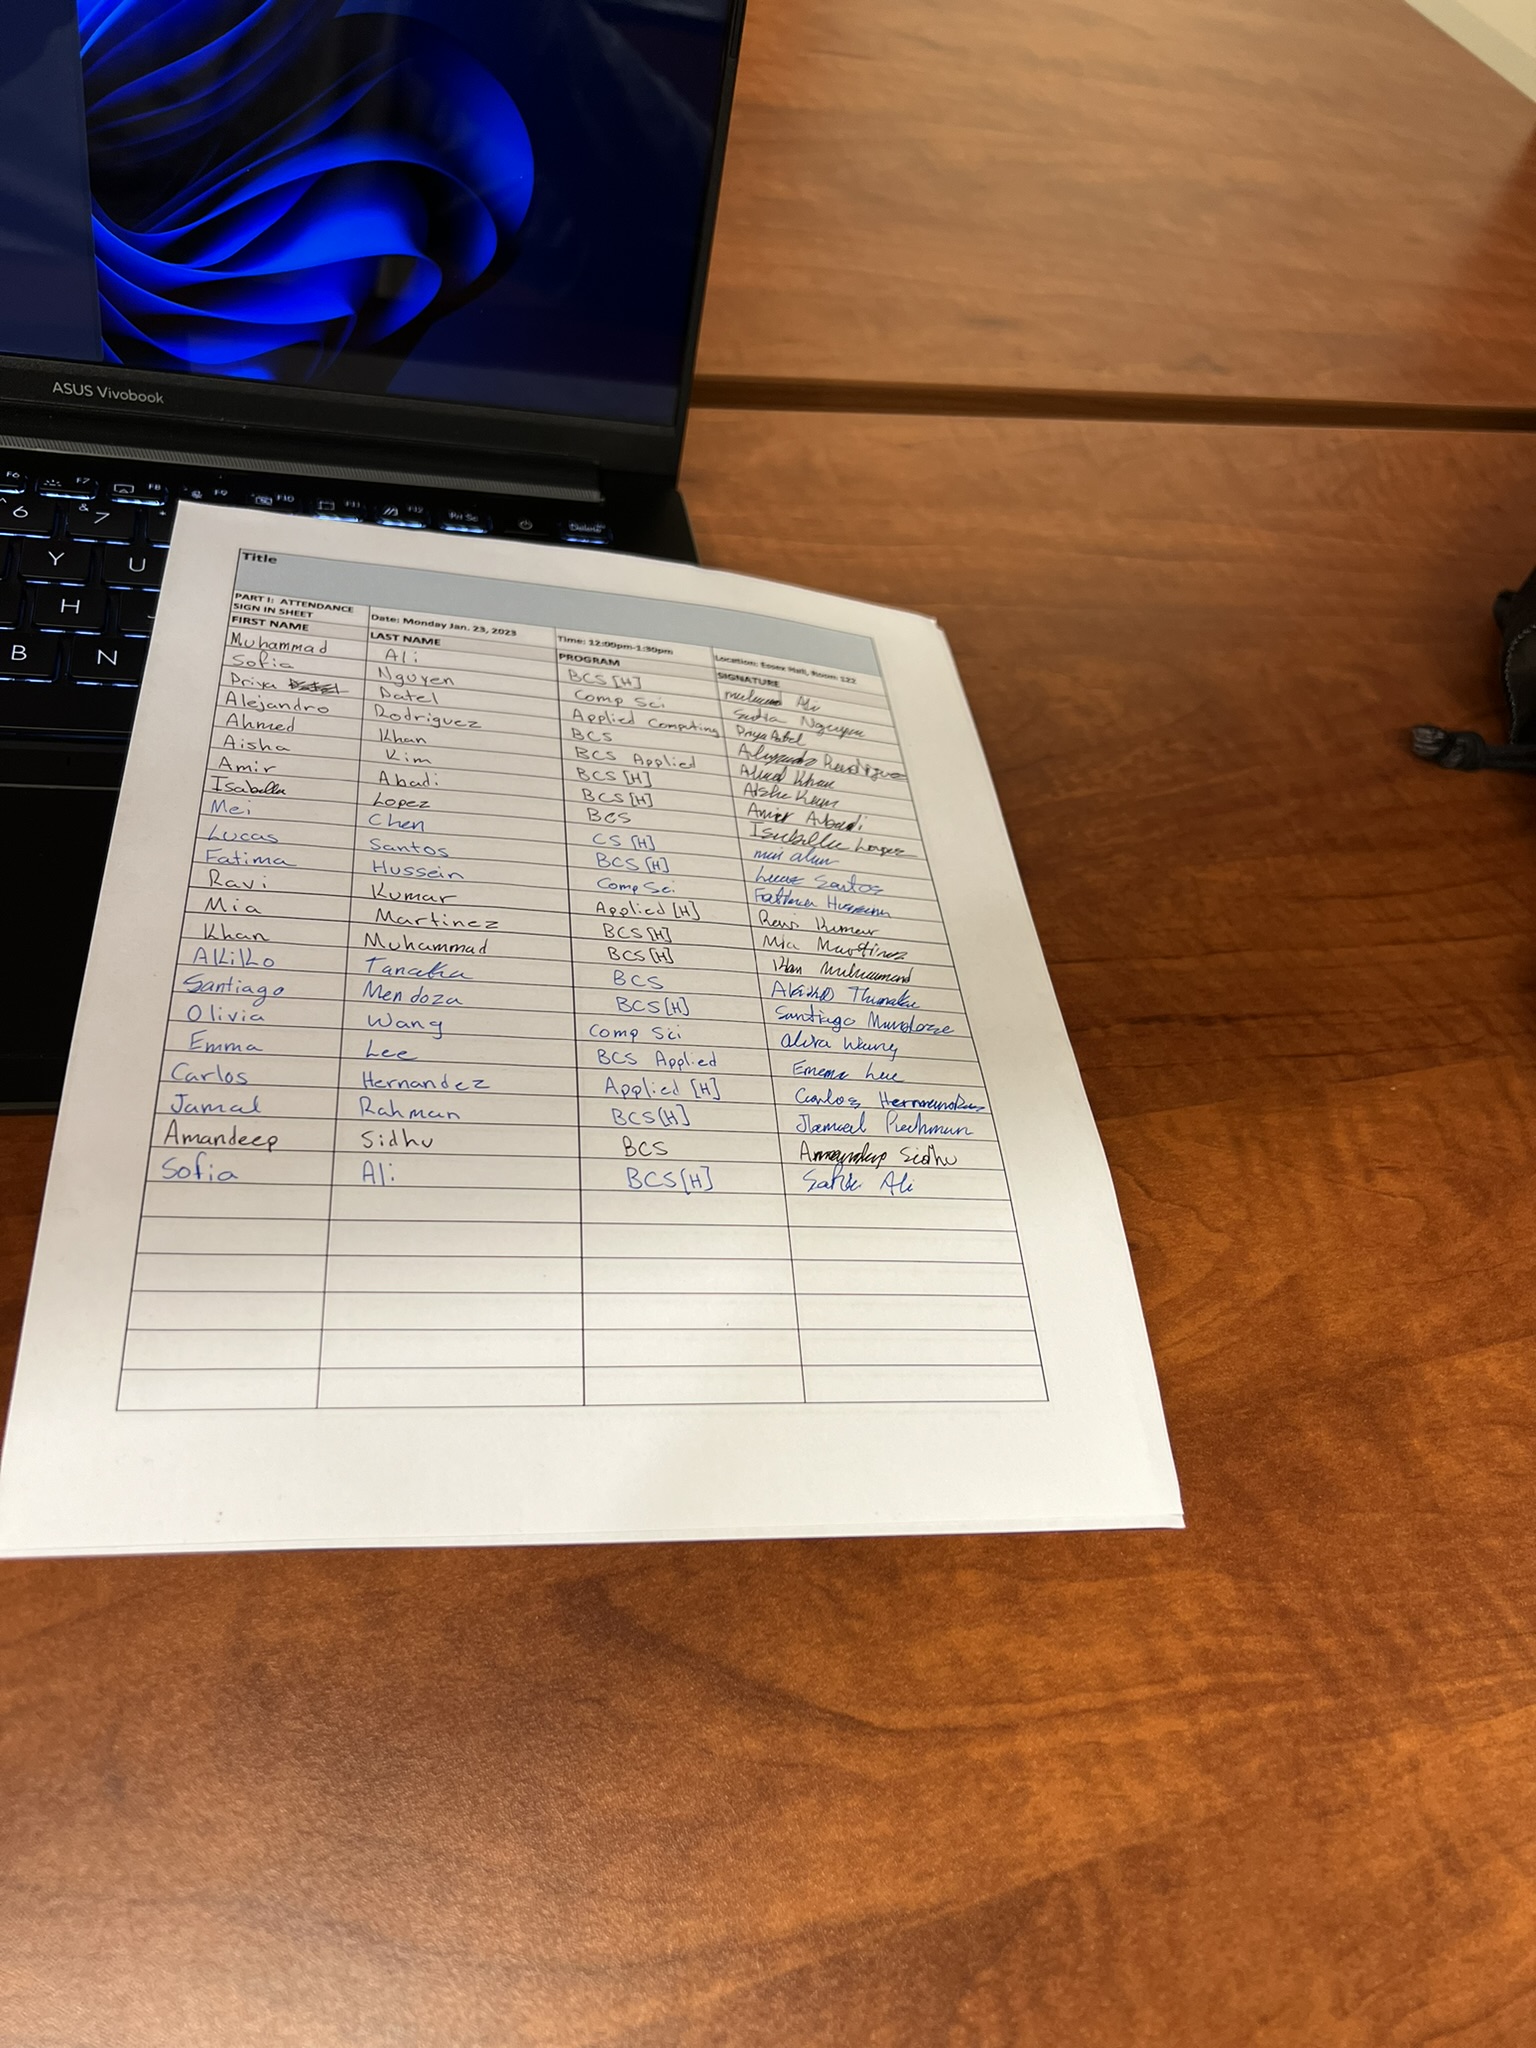 ASUS Vivobook
F6 F7 F8 F9 F10 F11 F12 Prt Sc Delete
^ 6 & 7 *
Y U
H
B N
Title
PART I: ATTENDANCE SIGN IN SHEET Date: Monday Jan. 23, 2023 Time: 12:00pm-1:30pm Location: Essex Hall, Room 122
FIRST NAME LAST NAME PROGRAM SIGNATURE
Muhammad Ali BCS [H] Ali
Sofia Nguyen Comp Sci Nguyen
Priya Patel Applied Computing Priya Patel
Alejandro Rodriguez BCS Alejandro Rodriguez
Ahmed Khan BCS Applied Ahmed Khan
Aisha Kim BCS [H] Aisha Kim
Amir Abadi BCS [H] Amir Abadi
Isabella Lopez BCS Isabella Lopez
Mei Chen CS [H]
Lucas Santos BCS [H] Lucas Santos
Fatima Hussein Comp Sci Fatima Hussein
Ravi Kumar Applied [H] Ravi Kumar
Mia Martinez BCS [H] Mia Martinez
Khan Muhammad BCS [H] Khan Muhammad
AKiKo Tanaka BCS
Santiago Mendoza BCS [H] Santiago
Olivia Wang Comp Sci Wang
Emma Lee BCS Applied Lee
Carlos Hernandez Applied [H] Carlos Hernandez
Jamal Rahman BCS [H] Jamal
Amandeep Sidhu BCS Amandeep Sidhu
Sofia Ali BCS [H] Ali